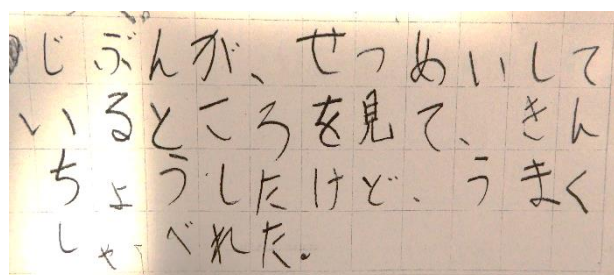 じぶんが、せつめいして
いるところを見て、きん
ちょうしたけど、うまく
しゃべれた。